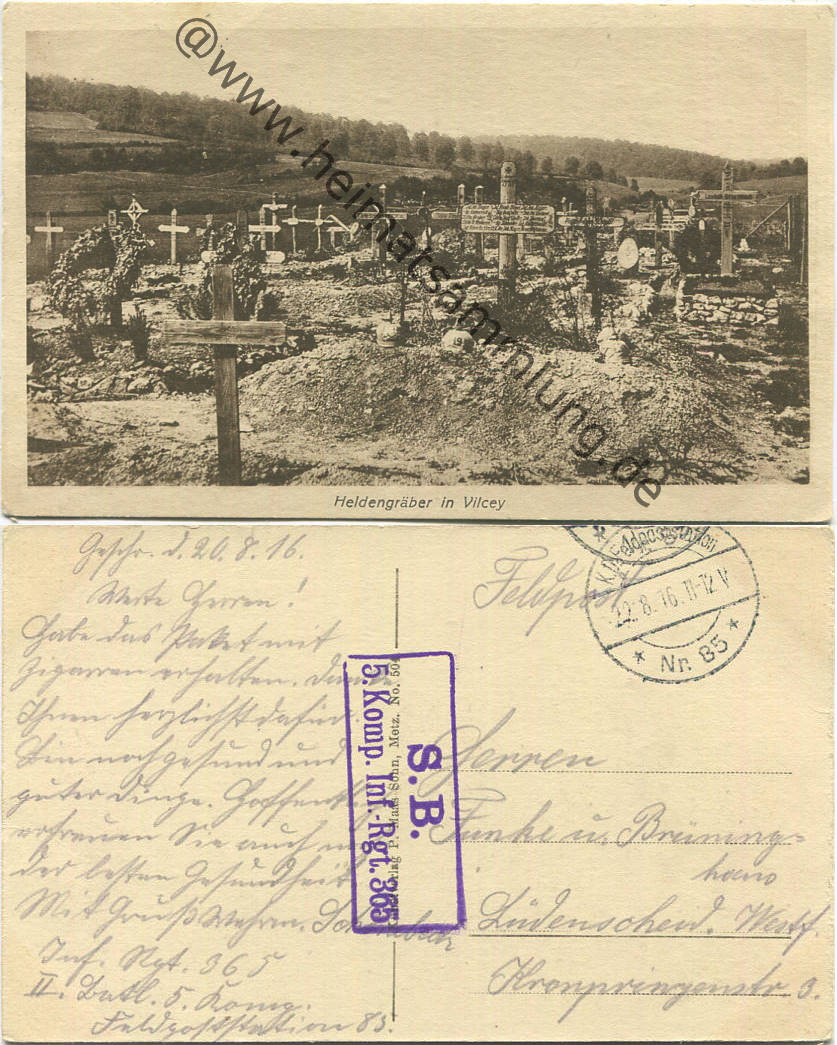 @www.heimatsammlung.de
Heldengräber in Vilcey
Geschr. d. 20.8.16.
Werte Herren!
Habe das Paket mit
Zigarren erhalten. Danke
Ihnen herzlichst dafür.
Bin noch gesund und
guter Dinge. Hoffentl.
erfreuen Sie auch
der besten Gesundheit
Mit Gruß Wehrm.
Inf. Rgt. 365
II. Batl. 5. Komp.
Feldpoststation 85.
S.B.
5. Komp. Inf.-Rgt. 365
Verlag P. Maas Sohn, Metz. No. 504
Feldpost
K.D. Feldpoststation
22.8.16. 11-12 V
* Nr. 85 *
Herren
Funke u. Brüning-
haus
Lüdenscheid. Westf.
Kronprinzenstr. 3.